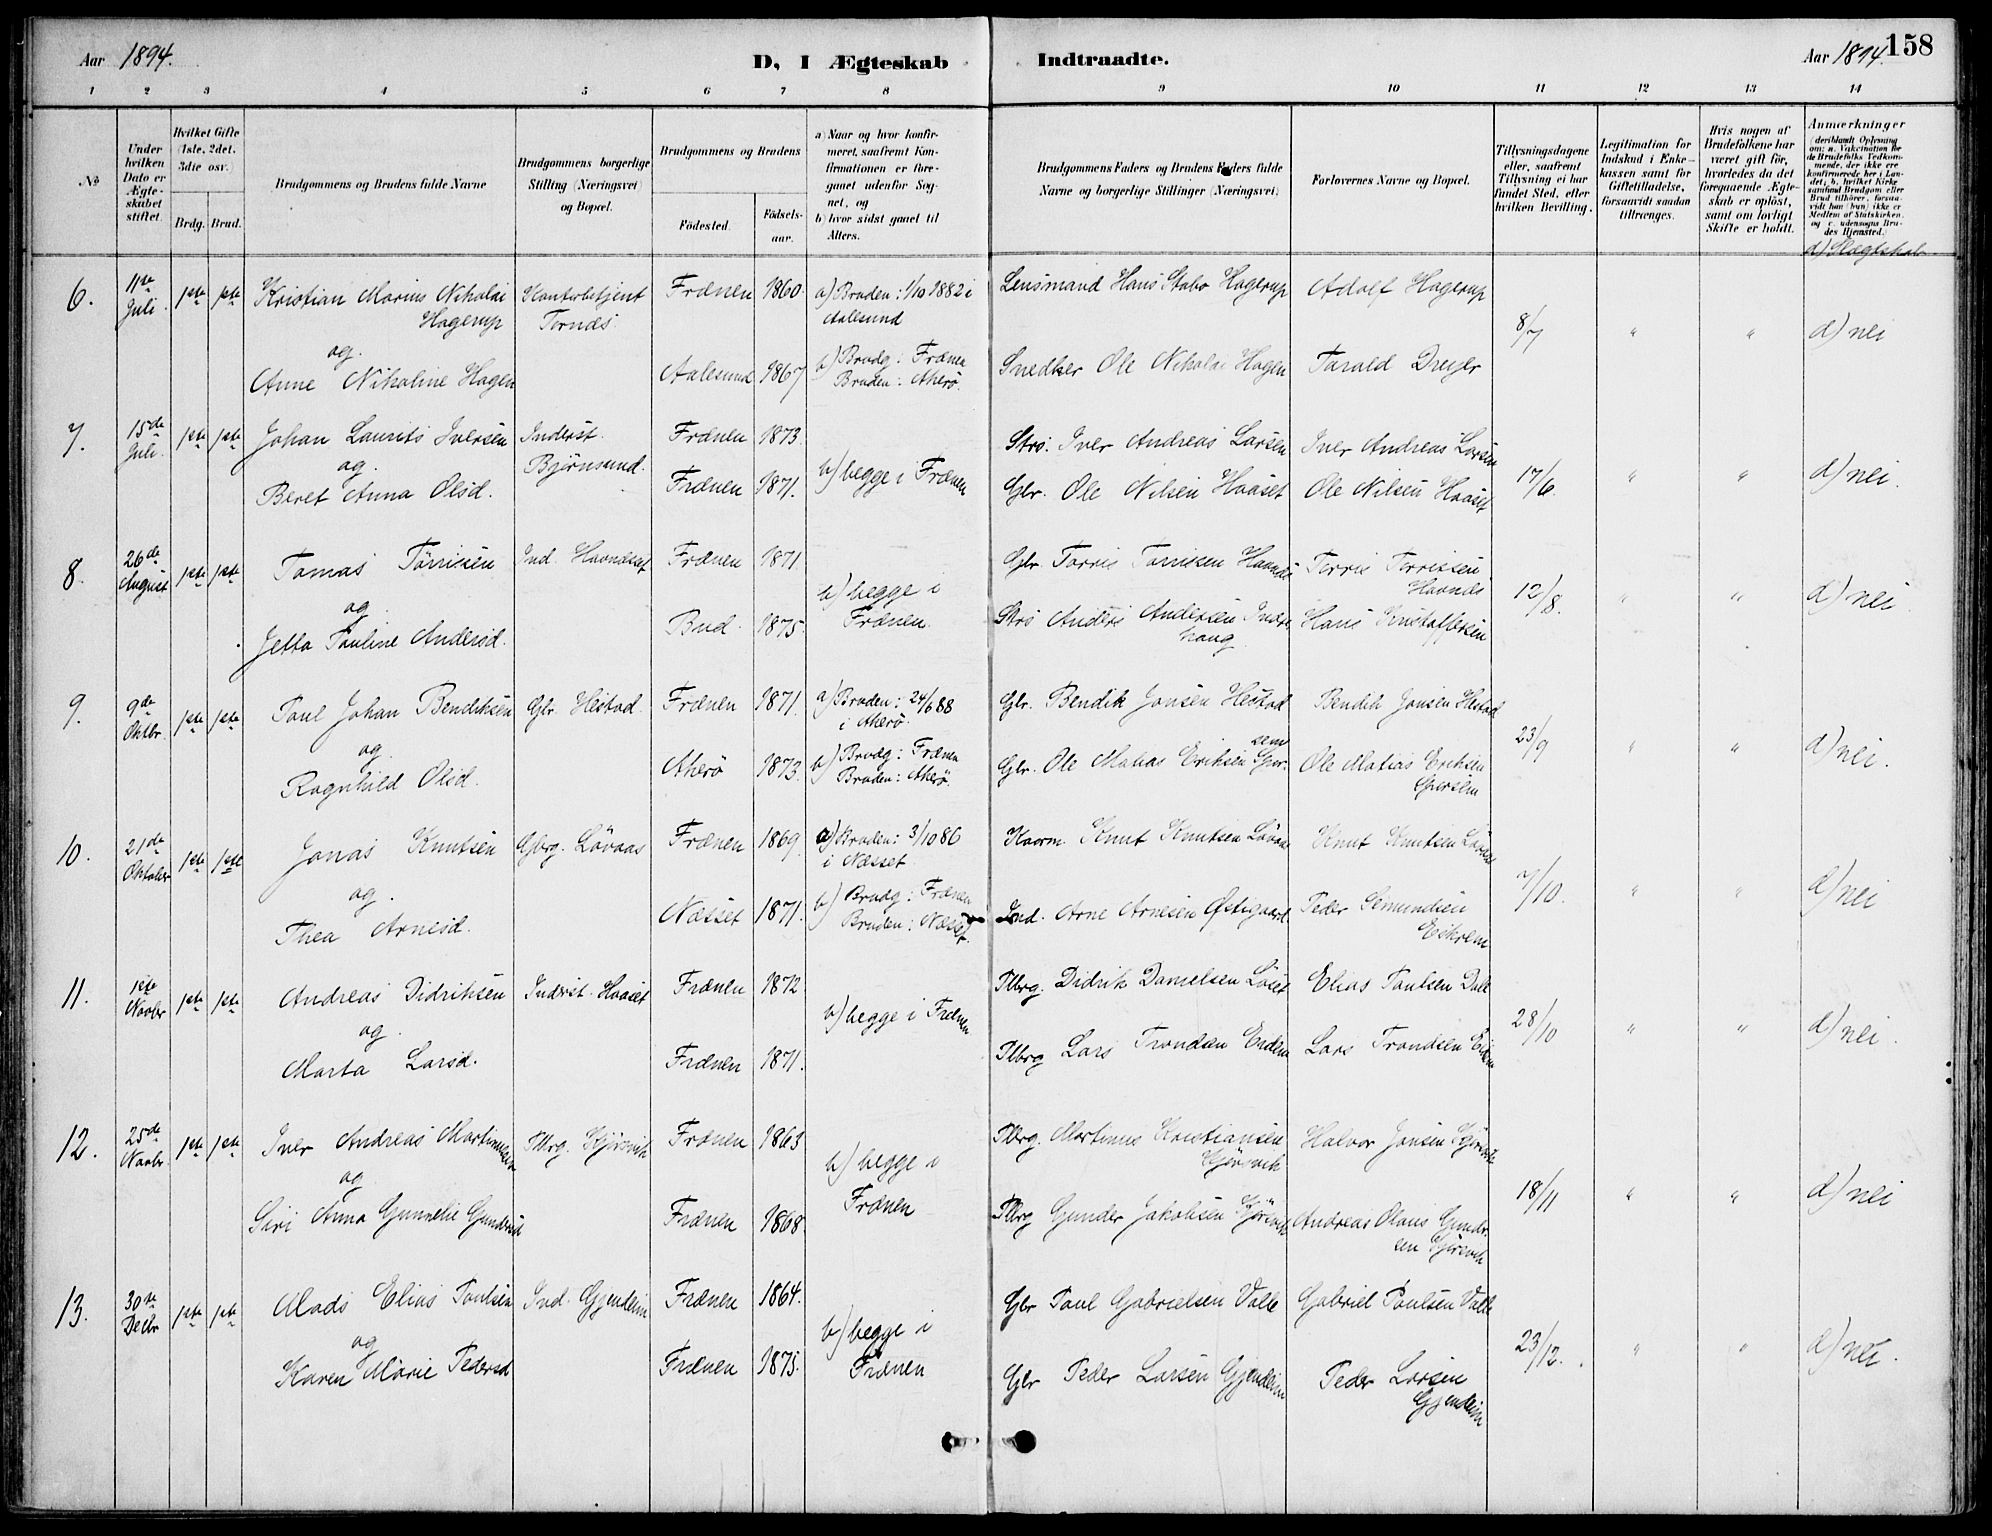 Aar 1894.
D, I Ægteskab
Indtraadte.
Aar 1894.
158
1 2 3 4 5 6 7 8 9 10 11 12 13 14
No
Under
hvilken
Dato er
Ægte-
skabet
stiftet.
Hvilket Gifte
(1ste, 2det,
3die osv.)
Brdg. Brud.
Brudgommens og Brudens fulde Navne
Brudgommens borgerlige
Stilling (Næringsvei)
og Bopæl.
Brudgommens og Brudens
Fødested.
Fødsels-
aar.
a) Naar og hvor konfir-
meret, saafremt Kon-
firmationen er fore-
gaaet udenfor Sog-
net, og
b) hvor sidst gaaet til
Alters.
Brudgommens Faders og Brudens Faders fulde
Navne og borgerlige Stillinger (Næringsvei)
Forlovernes Navne og Bopæl.
Tillysningsdagene
eller, saafremt
Tillysning ei har
fundet Sted, efter
hvilken Bevilling.
Legitimation for
Indskud i Enke-
kassen samt for
Giftetilladelse,
forsaavidt saadan
tiltrænges.
Hvis nogen af
Brudefolkene har
været gift før,
hvorledes da det
foregaaende Ægte-
skab er opløst,
samt om lovligt
Skifte er holdt.
Anmærkninger
(deriblandt Oplysning
om: a. Vakcination for
de Brudefolks Vedkom-
mende, der ikke ere
konfirmerede her i Lan-
det; b. hvilket Kirke-
samfund Brudgom eller
Brud tilhører, forsaa-
vidt han (hun) ikke er
Medlem af Statskirken,
og c. udensogns Bru-
des Hjemsted.)
d) Slægtskab
6. 11te 1ste 1ste Kristian Marius Nikolai Kontorbetjent Frænen 1860 a) Bruden: 1/10 1882 i Lensmand Hans Stabo Hagerup Adolf Hagerup
Juli Hagerup Tornes Aalesund 8/7 " " d) nei
og
Anne Nikoline Hagen Aalesund 1867 b) Brudg: Frænen Snedker Ole Nikolai Hagen Tarald Dreyer
Bruden: Akerø.
7. 15de 1ste 1ste Johan Laurits Iversen Inderst. Frænen 1873. Strs. Iver Andreas Larsen Iver Andreas Larsen
Juli. og Bjørnsund. b) begge i Frænen 17/6. " " d) nei.
Beret Anna Olsd. Frænen 1871. Gbr. Ole Nilsen Haaset Ole Nilsen Haaset
8. 26de 1ste 1ste Tomas Tørrisen Ind. Frænen 1871 Gbr Torris Torrissen Torris Torrissen
August og b) begge i Havnes 12/8. " " d) nei
Jetta Pauline Andersd. Bud. 1875. Frænen. Strs Anders Andersen Hans Kristoffersen
haug
9. 9de 1ste 1ste Paul Johan Bendiksen Gbr. Hestad Frænen 1871. a) Bruden: 24/6 88 Gbr. Bendik Jonsen Hestad Bendik Jonsen Hestad
Oktbr. og i Akerø. 23/9 " " d) nei.
sem
Ragnhild Olsd. Akerø 1873. b) Brudg: Frænen Gbr. Ole Matias Eriksen Gjer- Ole Matias Eriksen
Bruden: Akerø. Gjersem
10. 21de 1ste 1ste Jonas Knutsen Gbrg. Løvaas Frænen 1869. a) Bruden: 3/10 86 Kaarm. Knut Knutsen Løvaas Knut Knutsen Løvaas
Oktober og. i Næsset. 7/10. " " d) nei
Thea Arnesd. Næsset 1871. b) Brudg: Frænen Ind. Arne Arnesen Østigaard Peder Semundsen
Bruden: Næsset. Eikrem
11. 1ste 1ste 1ste Andreas Didriksen Inderst. Haaset Frænen 1872 Plbrg. Didrik Danielsen Løset Elias Paulsen Dale
Novbr og. b) begge i Frænen 28/10 " " d) nei.
Marta Larsd. Frænen 1871. Plbrg Lars Trondsen Eidem Lars Trondsen Eidem
12. 25de 1ste 1ste Iver Andreas Martinussen Plbrg. Gjørsvik Frænen 1863 Plbrg. Martinus Kristiansen Halvor Jonsen Gjørsvik
Novbr. og b) begge i Gjørsvik 18/11 " " d) nei
Siri Anna Gunnelie Gundersd Frænen 1868. Frænen Plbrg Gunder Jakobsen Gjørsvik Andreas Olaus Gunder-
sen Gjørsvik
13. 30te 1ste 1ste Mads Elias Paulsen Ind. Gjendem Frænen 1864. Gbr Paul Gabrielsen Valle Gabriel Paulsen Valle
Decbr og b) begge i 23/12. " " d) nei.
Karen Marie Pedersd Frænen 1875. Frænen Gbr Peder Larsen Gjendem Peder Larsen
Gjendem